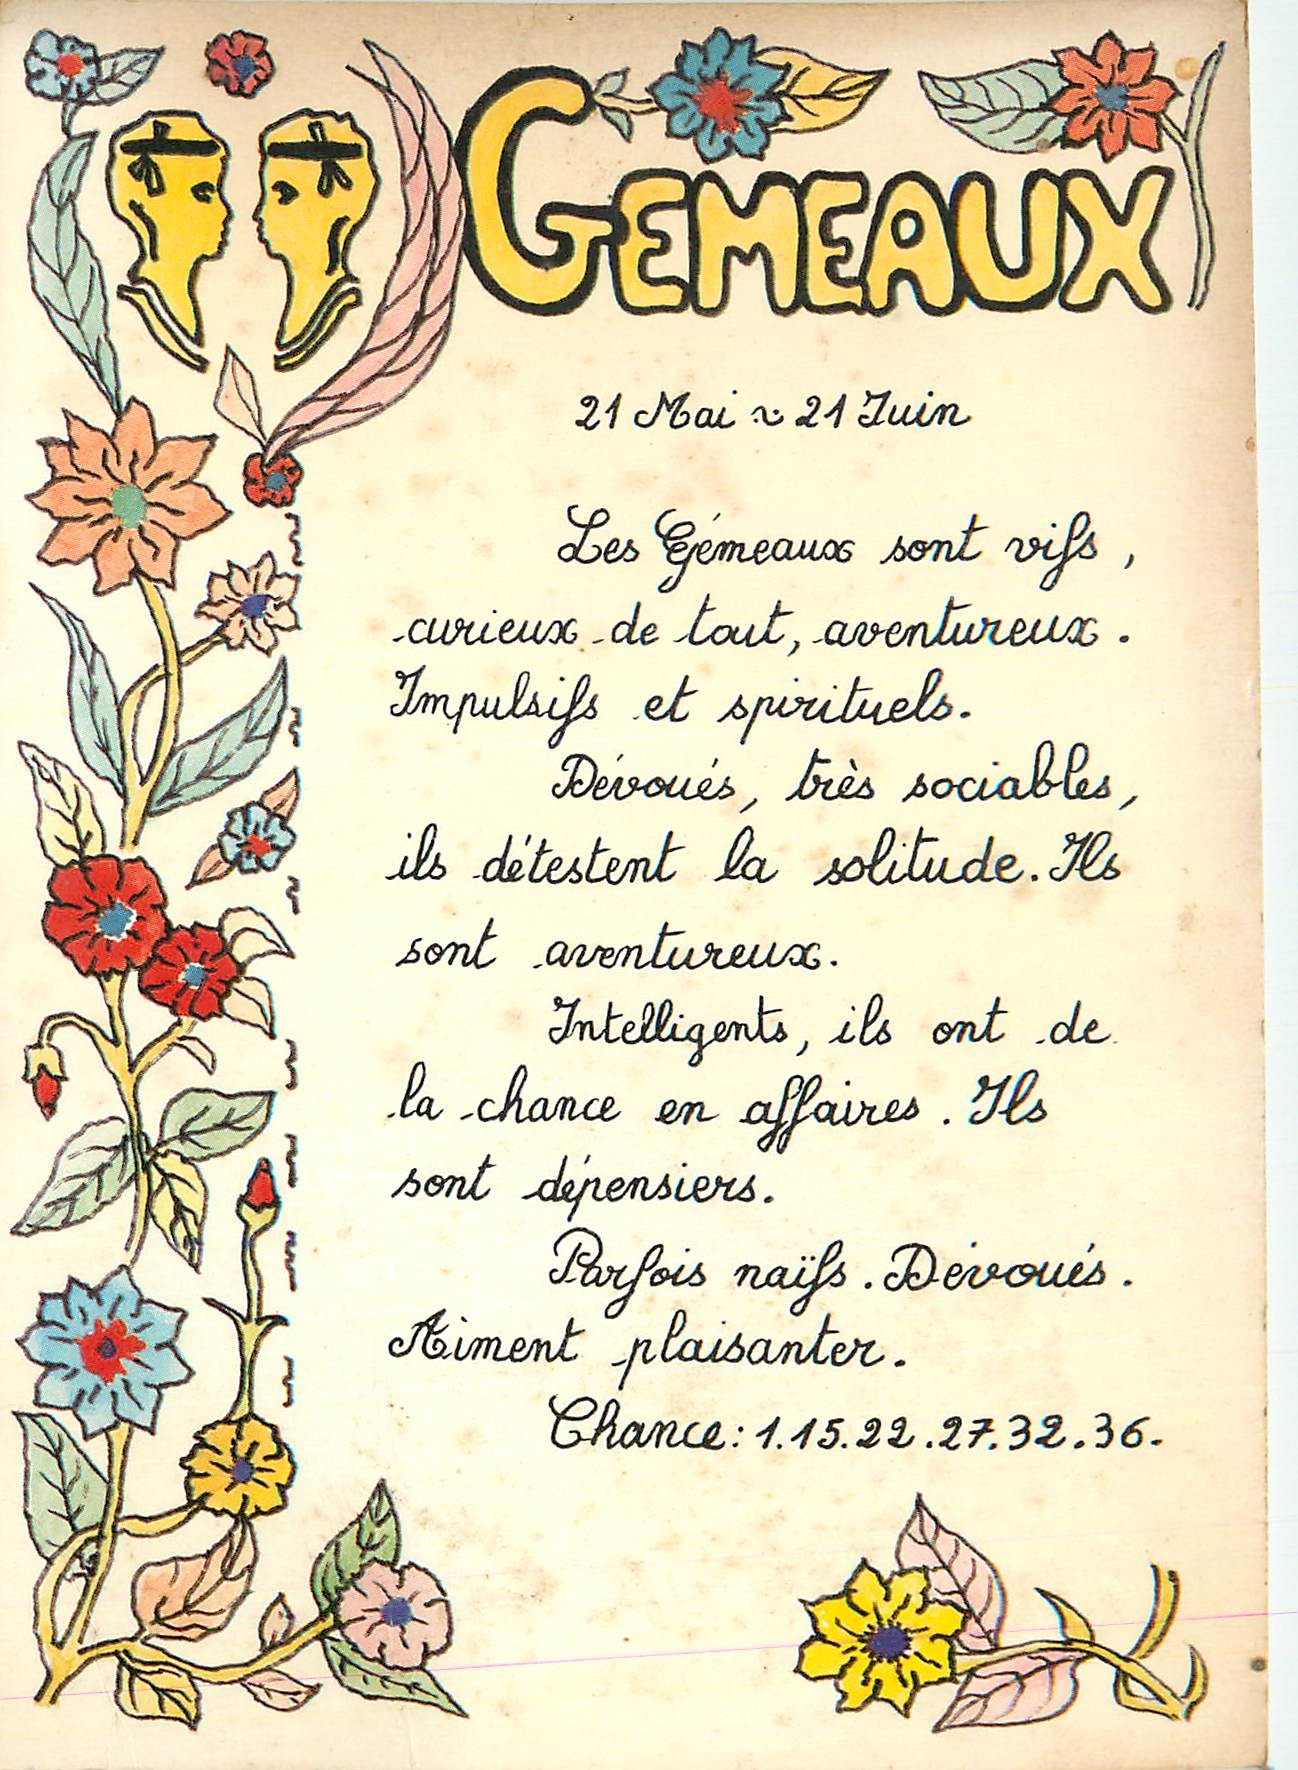 GEMEAUX
21 Mai ~ 21 Juin
Les Gémeaux sont vifs,
curieux de tout, aventureux.
Impulsifs et spirituels.
Dévoués, très sociables,
ils détestent la solitude. Ils
sont aventureux.
Intelligents, ils ont de
la chance en affaires. Ils
sont dépensiers.
Parfois naïfs. Dévoués.
Aiment plaisanter.
Chance: 1.15.22.27.32.36.